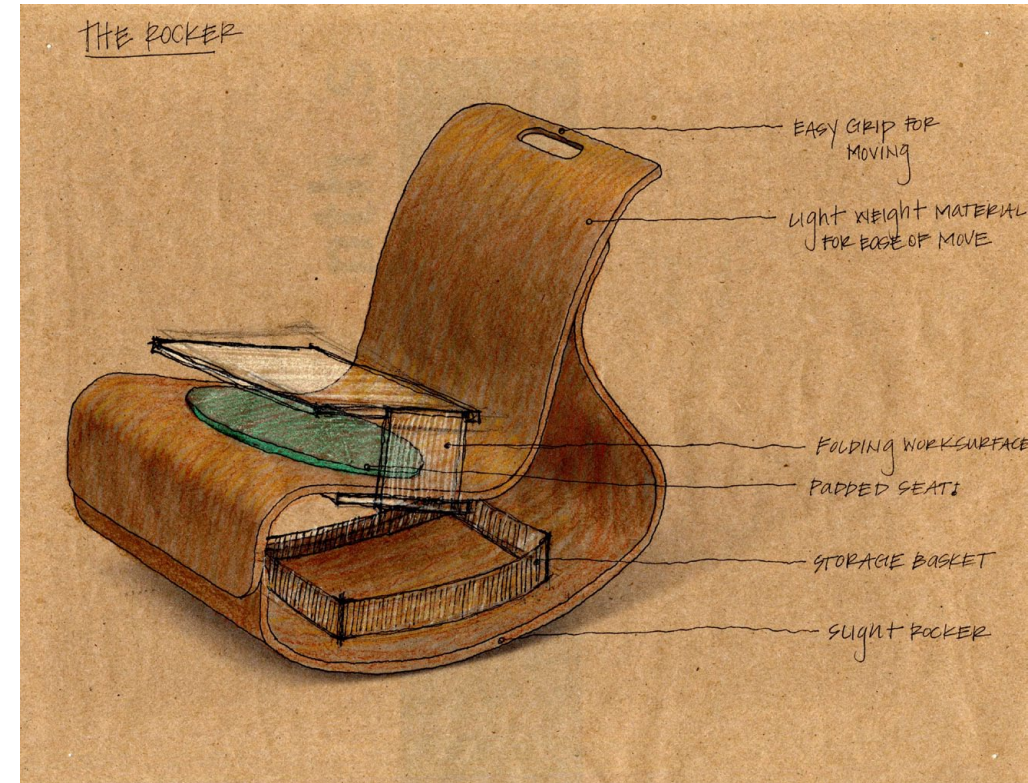 THE ROCKER
EASY GRIP FOR
MOVING
LIGHT WEIGHT MATERIAL
FOR EASE OF MOVE
FOLDING WORKSURFACE
PADDED SEAT!
STORAGE BASKET
SLIGHT ROCKER